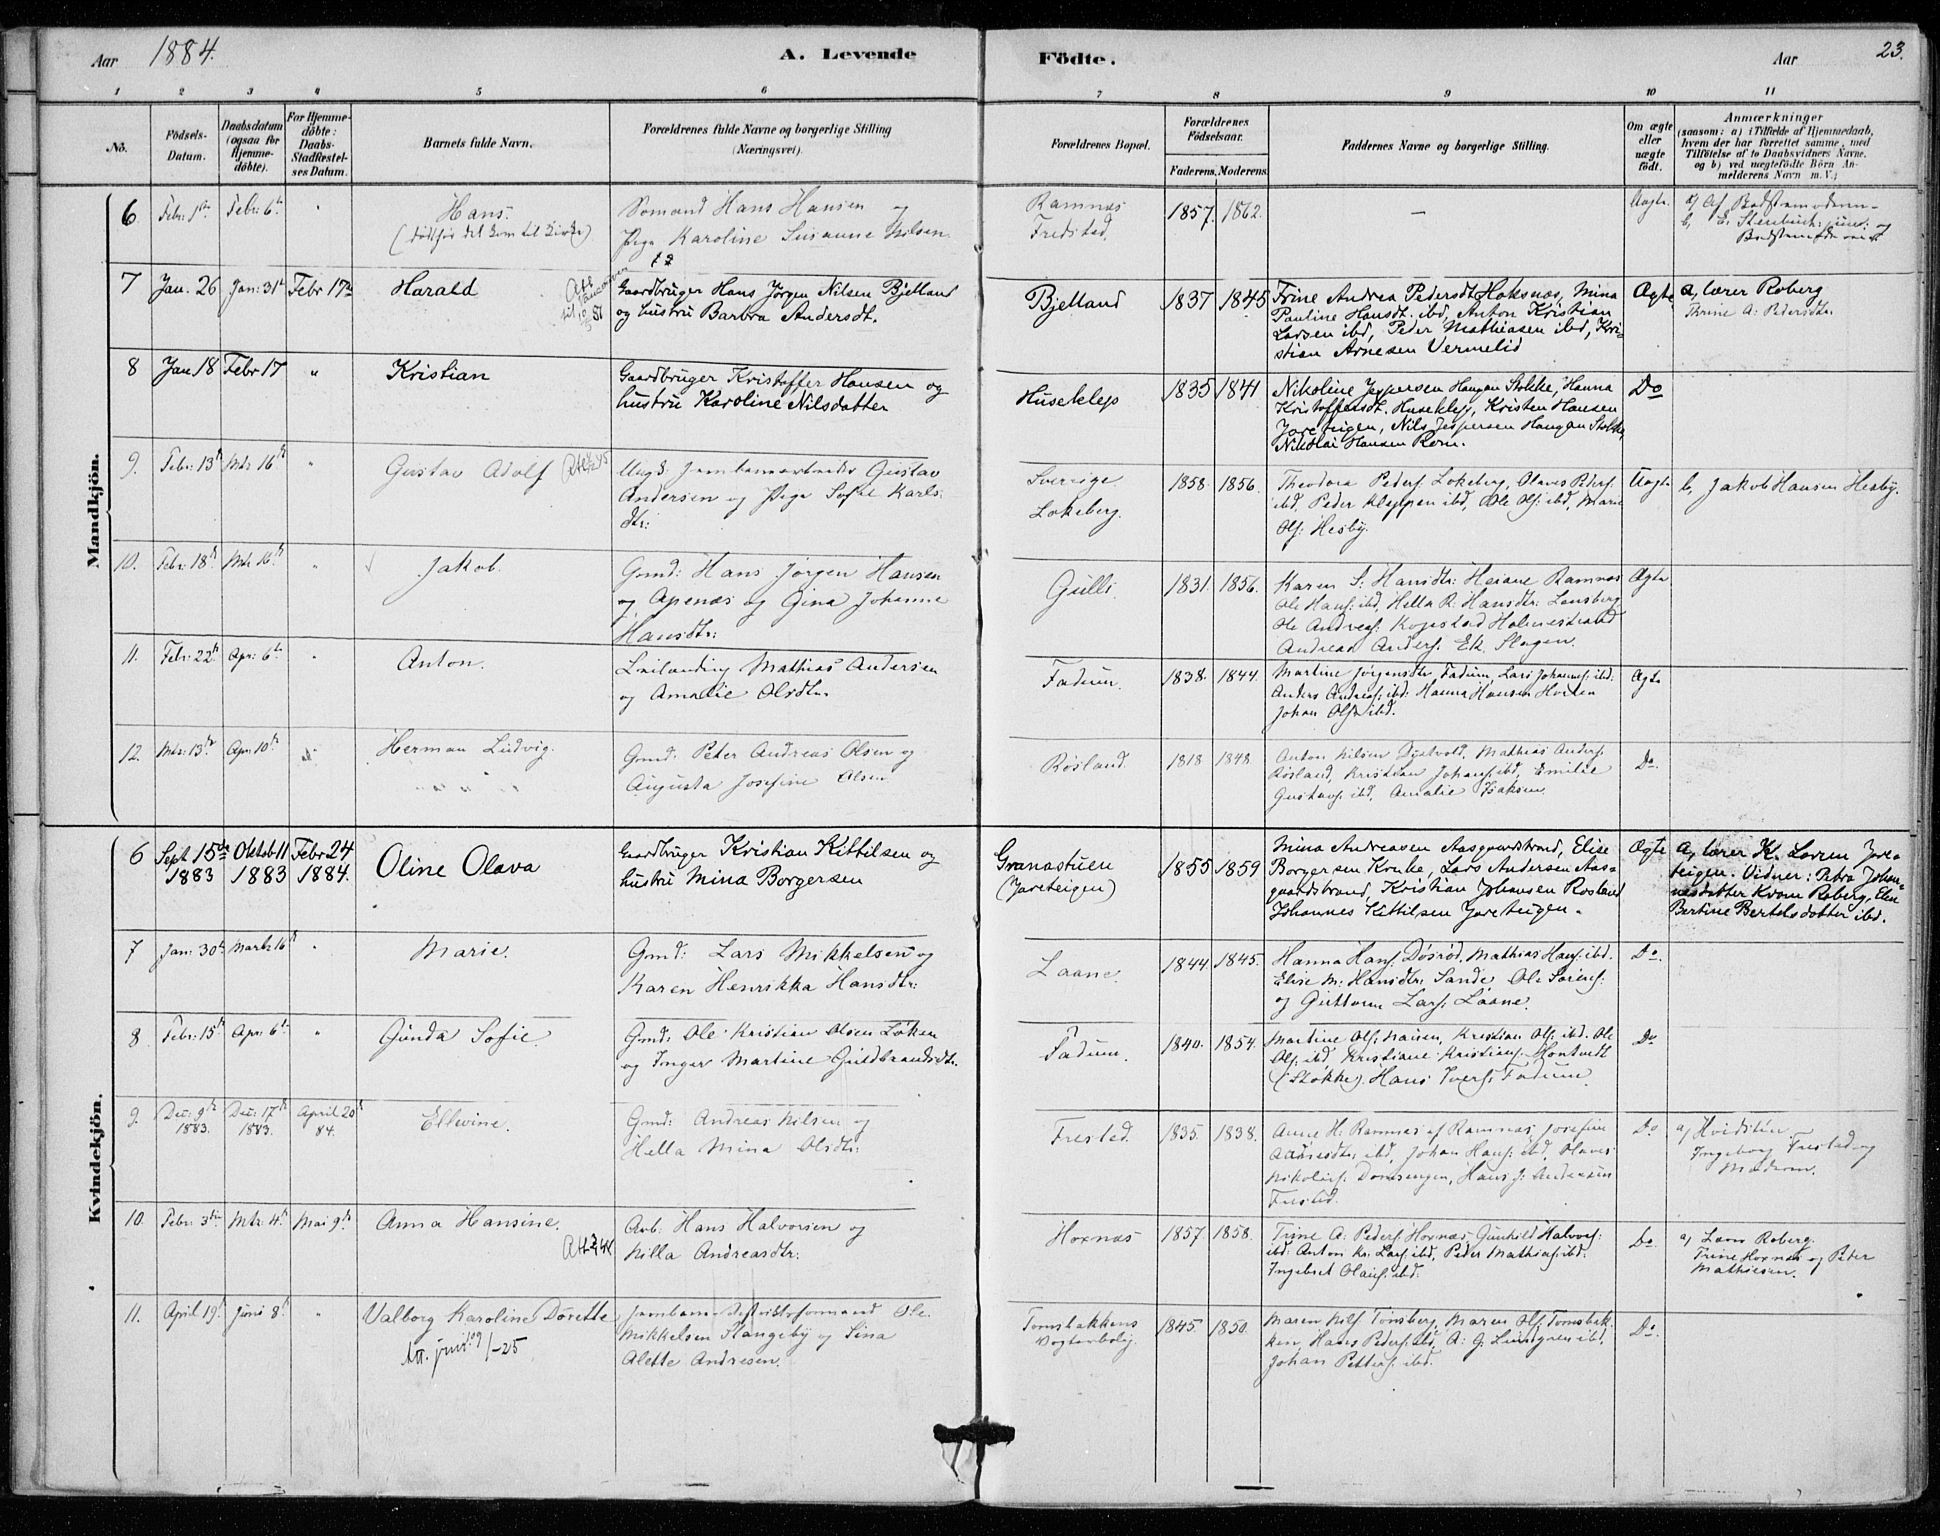 Aar 1884.
A. Levende Födte.
Aar 23.
1 2 3 4 5 6 7 8 9 10 11
No.
Födsels-Datum.
Daabsdatum (ogsaa for Hjemme-döbte).
For Hjemme-döbte: Daabs-Stadfæstel-ses Datum.
Barnets fulde Navn.
Forældrenes fulde Navne og borgerlige Stilling
(Næringsvei).
Forældrenes Bopæl.
Forældrenes Födselsaar.
Faderens. Moderens.
Faddernes Navne og borgerlige Stilling.
Om ægte eller uægte födt.
Anmærkninger
(saasom: a) i Tilfælde af Hjemmedaab,
hvem der har forrettet samme, med
Tilföielse af to Daabsvidners Navne,
og b) ved uægtefödte Börn An-
melderens Navn m. V.;
Mandkjön.
6 Febr: 1ste Febr: 6te " Hans.
(død før det kom til Kirke)
Sømand Hans Hansen og
Pige Karoline Susanne Nilsen
Ramnæs
Fredsted,
1857. 1862. —
Uægte
7 Jan. 26 Jan: 31te Febr 17de Harald
Gaardbruger Hans Jørgen Nilsen Bjelland
og hustru Barbra Andersdt.
Bjelland 1837 1845
Trine Andrea Pedersdt Hoksnæs, Mina
Pauline Hansdt. ibd, Anton Kristian
Larsen ibd, Peder Mathiasen ibd, Kri-
stian Arnesen Vermelid
Ægte a, lærer Roberg
Thrine A: Pedersdtr.
8 Jan 18 Febr 17 " Kristian
Gaardbruger Kristoffer Hansen og
hustru Karoline Nilsdatter
Huseklep 1835 1841
Nikoline Jespersen Haugan Stokke, Hanna
Kristoffersdt. Huseklep, Kristen Hansen
Jareteigen, Nils Jespersen Haugan Stokke,
Nikolai Hansen Rom.
Do
9. Febr: 13de Mts 16de " Gustav Adolf
Ungk: Jernbanearbeider Gustav
Andersen og Pige Sofie Karls-
dtr:
Sverige
Lokeberg.
1858. 1856.
Theodora Peders: Lokeberg, Olaves Peders:
ibd, Peder Kleppan ibd, Ole Ols: ibd, Marie
Ols: Hesby.
Uægte b, Jakob Hansen Hesby.
10. Febr: 18de Mts 16de " Jakob.
Gmd: Hans Jørgen Hansen
og Apenæs og Gina Johanne
Hansdtr:
Gulli 1831. 1856.
Karen S: Hansdtr: Heiane Ramnæs
Ole Hans: ibd, Hella R: Hansdtr:
Ole Andreas: Kopstad Holmestrand
Andreas Anders: Ek Slagen.
Ægte
11. Febr: 22de Apr: 6te " Anton.
Leilænding Mathias Andersen
og Amalie Olsdtr.
Fadum. 1838. 1844.
Martine Jørgensdtr Fadum, Lars Johanns: ibd.
Anders Andreas: ibd: Hanna Hansen Horten
Johan Ols: ibd.
Ægte
12. Mts: 13de Apr: 10de Herman Ludvig.
Gmd: Peter Andreas Olsen og
Augusta Josefine Olsen
Røsland. 1818 1848
Anton Nilsen Mathias Anders:
Røsland, Kristian Johans: ibd, Emilie
Gustavs: ibd, Amalie Isaksen.
Do.
Kvindekjön.
6 Sept 15de 1883 Oktob 11 1883 Febr 24 1884. Oline Olava
Gaardbruger Kristian Kittilsen og
hustru Mina Borgersen
Granastuen
(Jareteigen)
1855 1859
Mina Andreasen Aasgaardstrand, Elise
Borgersen Kruke, Lars Andersen Aas-
gaardstrand, Kristian Johansen Rosland
Johannes Kittilsen Jareteigen.
Ægte
A, lærer K. Lorem Jare-
teigen. Vidner: Petra Johan-
nesdatter Kvom Roberg, Elen
Bertine Bertelsdatter ibd.
7 Jan: 30te Marts 16de " Marie.
Gmd: Lars Mikkelsen og
Karen Henrikka Hansdtr:
Laane. 1844 1845.
Hanna Hans: Døsrød. Mathias Hans: ibd.
Elise M: Hansdtr: Sande Ole Sørens:
og Guttorm Lars: Laane.
Do.
8 Febr: 15de Apr: 6te " Gunda Sofie.
Gmd: Ole Kristian Olsen Løken
og Inger Martine Guldbrandsdtr.
Fadum. 1840. 1854.
Martine Ols: Nauen, Kristian Ols: ibd. Ole
Ols: ibd Kristiane Kristians: Hontvedt
(Stokke). Hans Ivers: Fadum.
Do
9. Dec: 9de 1883. Dec: 17de 1883. April 20de 84. Ellevine.
Gmd: Andreas Nilsen og
Hella Mina Olsdtr:
Frested. 1835. 1838.
Anne H: Ramnæs af Ramnæs, Josefine
ibd, Johan Hans: ibd, Olaves
Nikolais: Domsengen, Hans J: Andreasen
Frested.
Do a, Hvidstén.
Ingeborg Frested og
Moderen.
10. Febr: 3die Mts: 4de Mai 9de Anna Hansine.
Arb: Hans Halvorsen og
Nilla Andreasdtr:
Hoxnæs 1857. 1858.
Trine A: Peders: Hoxnæs, Gunhild Halvors:
ibd: Anton Kr: Lars: ibd, Peder Mathias: ibd.
Ingebret Olaus: ibd.
Do. a, Lærer Roberg.
Trine Hoxnæs og Peder
Mathiesen.
11. April 19de Juni 8de " Valborg Karoline Dorette
Att. 09/-25
Jernbane Distriktsformand Ole
Mikkelsen Slangeby og Sina
Alette Andresen.
Tomsbakkens
Vogterbolig.
1845. 1850.
Maren Nils: Tønsberg, Maren Ols: Tomsbak-
ken, Hans Peders: ibd, A: G: Lindgren ibd.
Johan Petters: ibd.
Do.